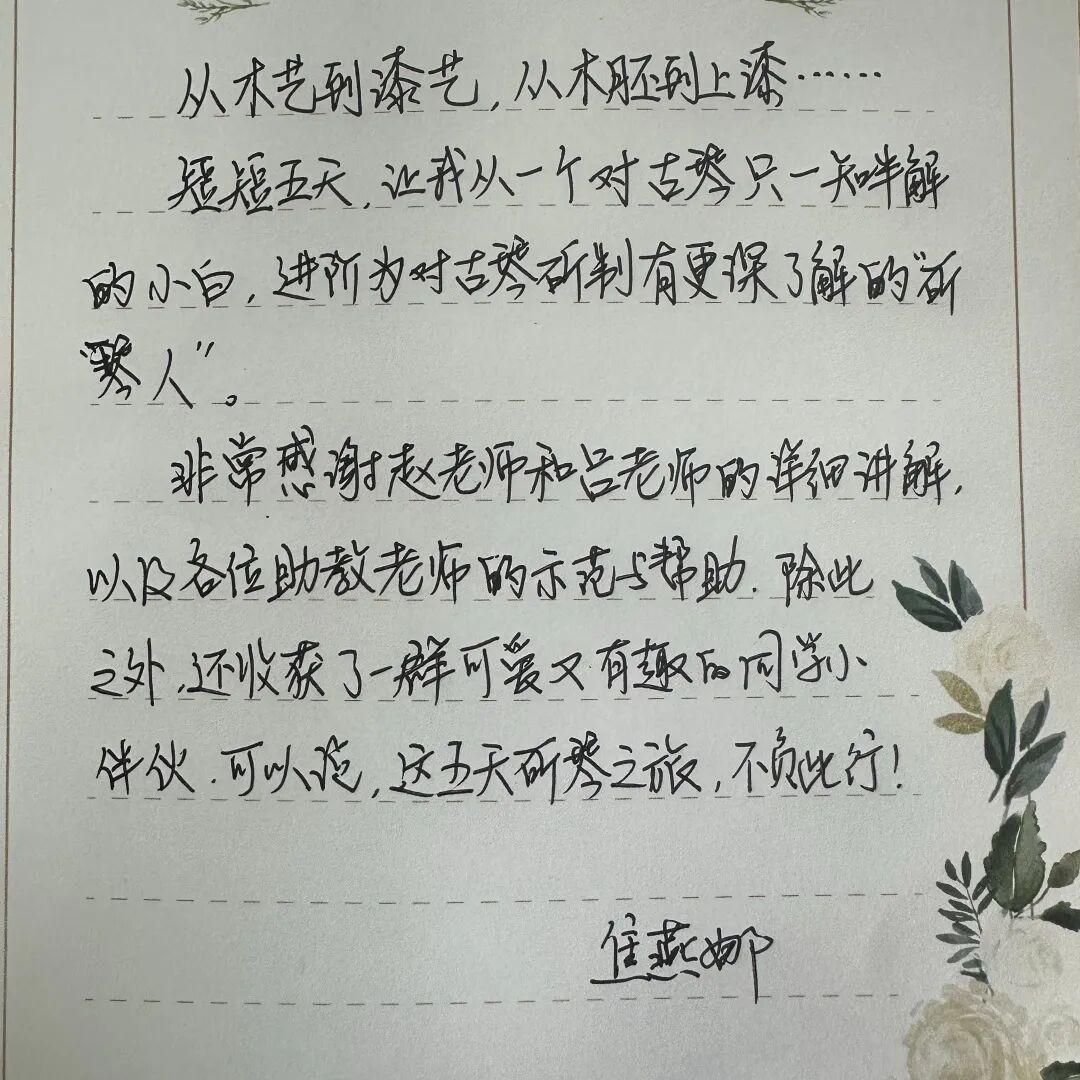 从木艺到漆艺,从木胚到上漆……
短短五天,让我从一个对古琴只一知半解
的小白,进阶为对古琴斫制有更深了解的"斫
琴人"。
非常感谢赵老师和吕老师的详细讲解,
以及各位助教老师的示范与帮助.除此
之外,还收获了一群可爱又有趣的同学小
伴伙.可以说,这五天斫琴之旅,不负此行!
焦燕娜